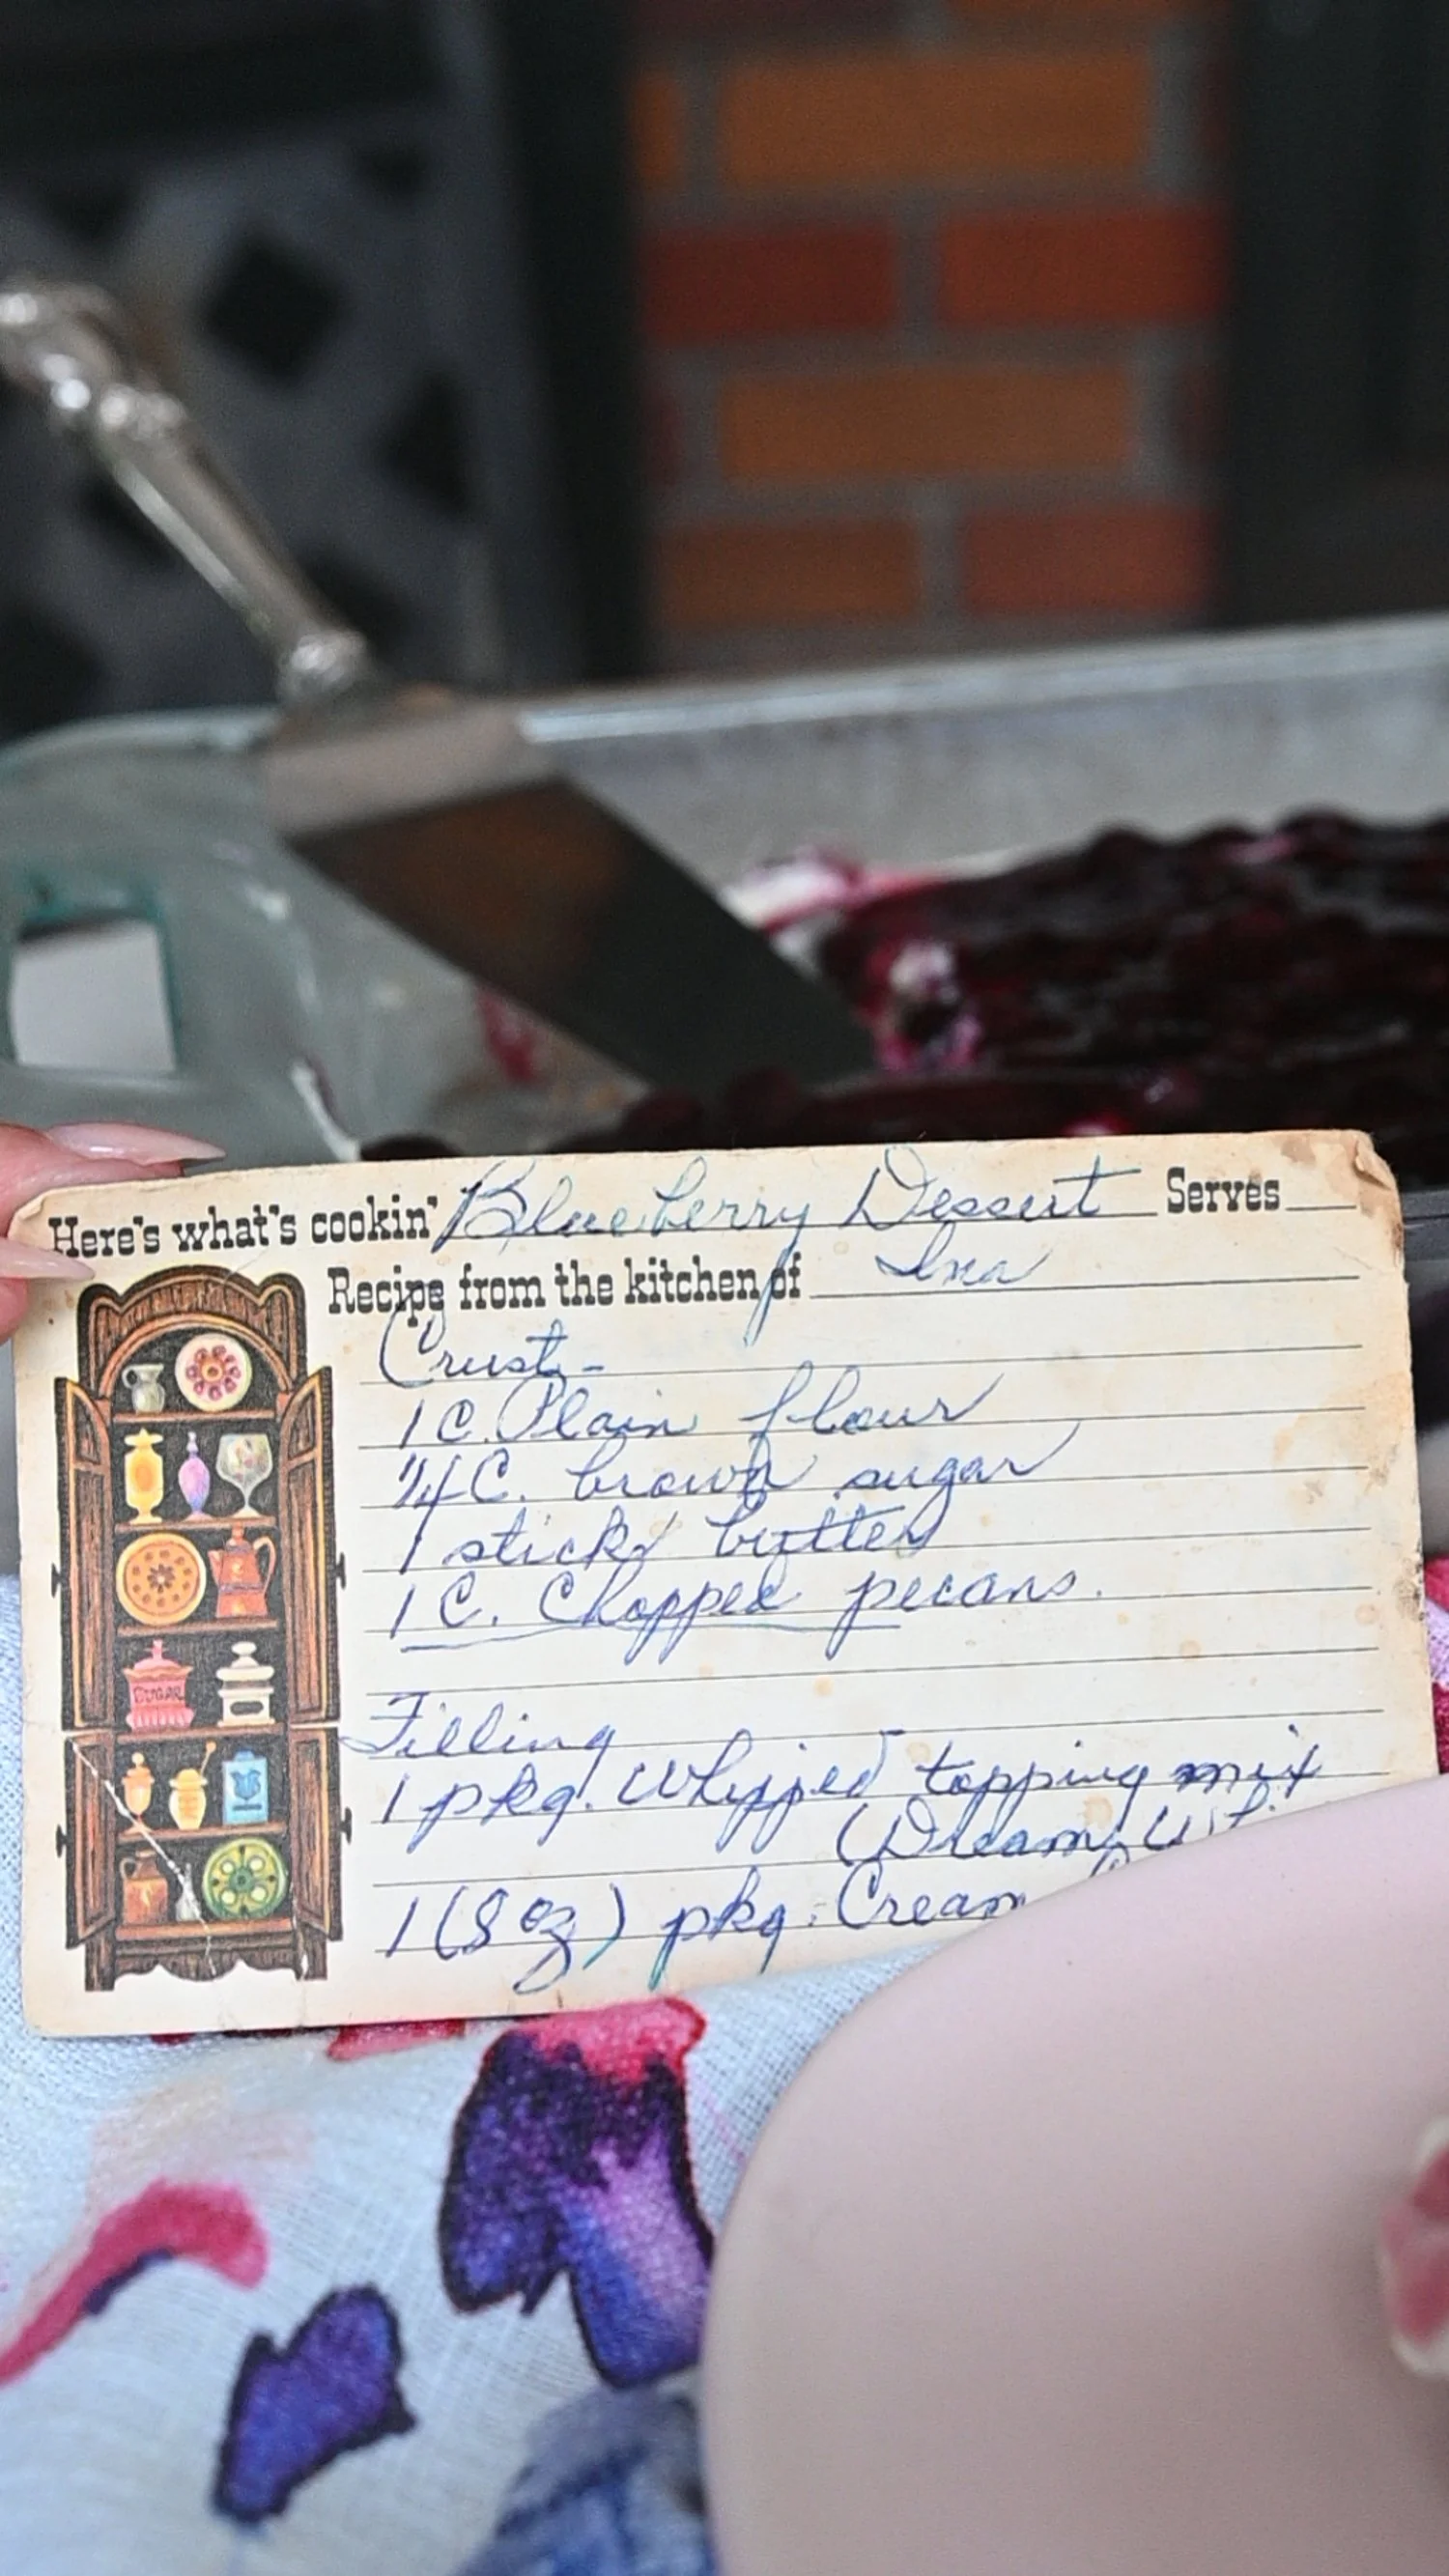 Here's what's cookin' Blueberry Dessert Serves
Recipe from the kitchen of Ina
Crust-
1 C. Plain flour
1/4 C. brown sugar
1 stick butter
1 C. Chopped pecans.
Filling
1 pkg. Whipped topping mix
(Dream
1 (8 oz) pkg. Cream
SUGAR